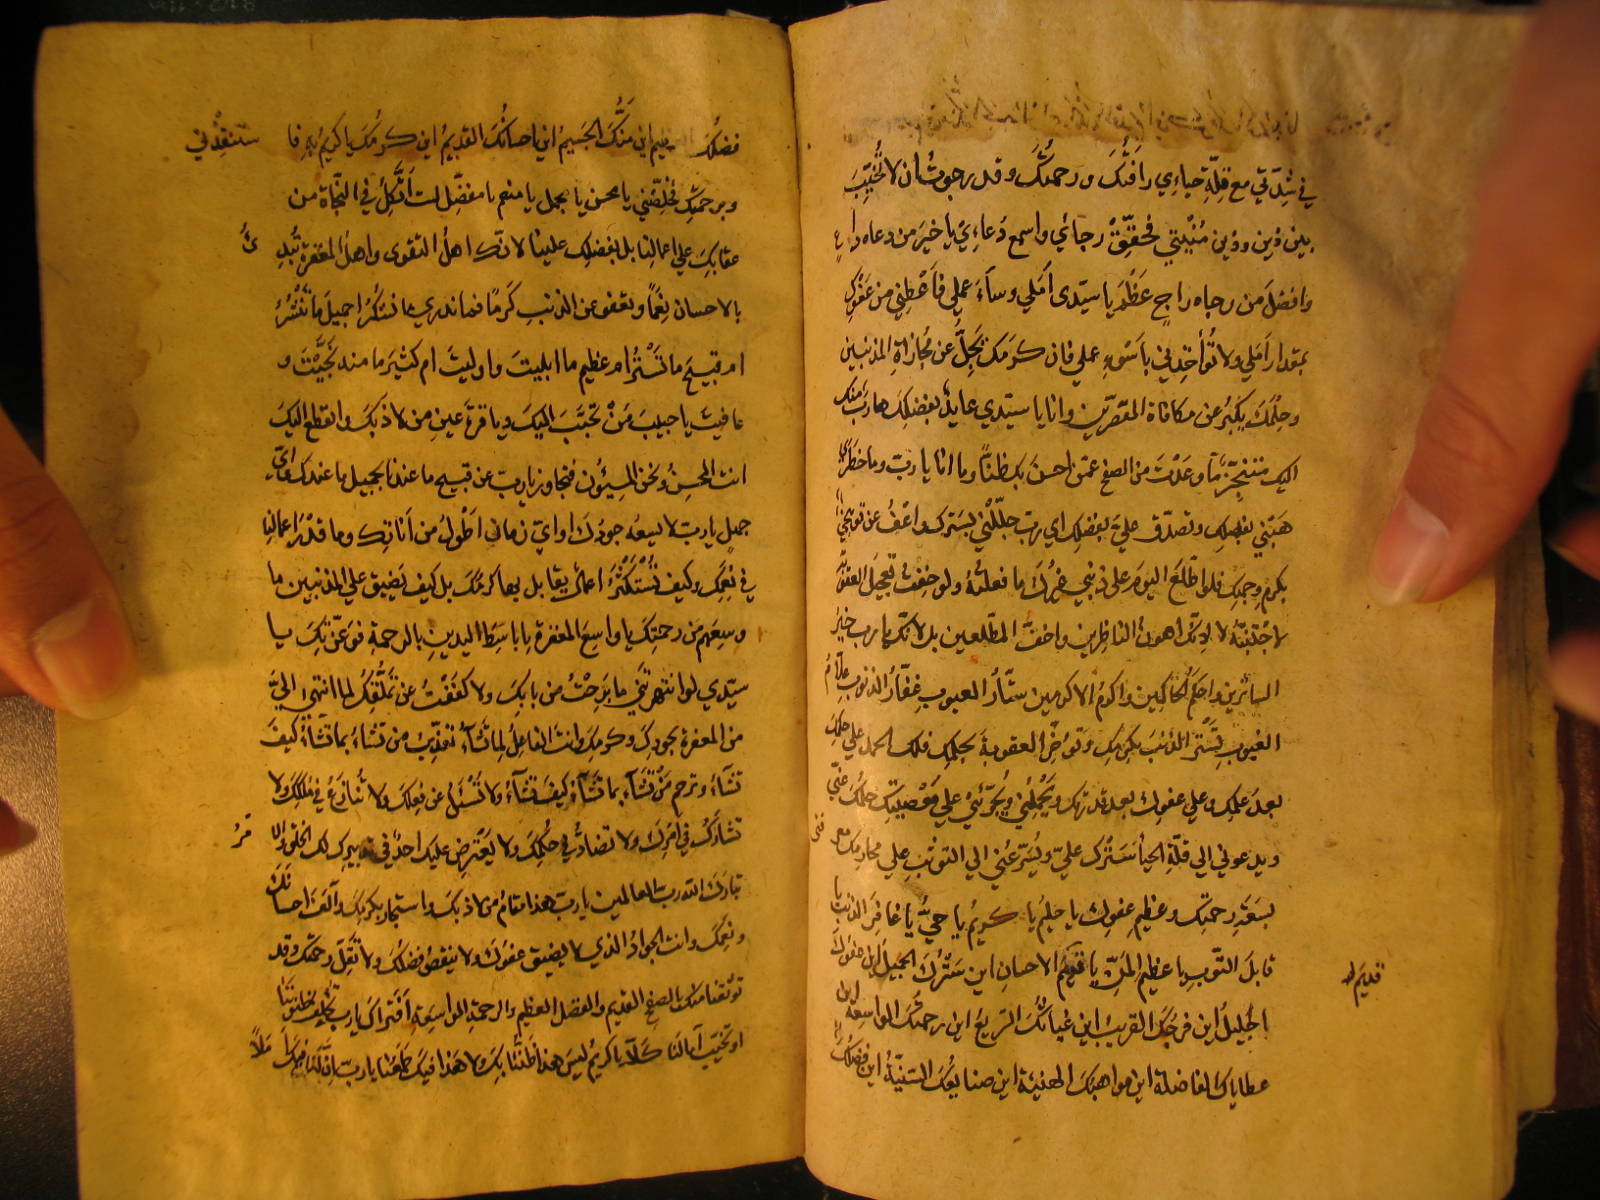 في شدتي مع قلة حيائي رأفتك ورحمتك وقد رجوت ان لا تخيب
بين ذين وذين منيتي فحقق رجائي واسمع دعائي يا خير من دعاه داع
وافضل من رجاه راج عظم يا سيدى املي وساء عملي فاعطني من عفوك
بمقدار املي ولا تؤاخذني باسوء عملي فان كرمك يجل عن مجازاة المذنبين
وحلمك يكبر عن مكافاة المقصرين وانا يا سيدي عايذ بفضلك هارب منك
اليك متنجز ما وعدت من الصفح عمن احسن بك ظنا وما انا يا رب وما خطرى
هبني بفضلك وتصدق علي بعفوك اي رب جللني بسترك واعف عن توبيخي
بكرم وجهك فلو اطلع اليوم على ذنبي غيرك ما فعلته ولو خفت تعجيل العقوبة
لاجتنبته لا لانك اهون الناظرين واخف المطلعين بل لانك يا رب خير
الساترين واحكم الحاكمين واكرم الاكرمين ستار العيوب غفار الذنوب علام
الغيوب تستر الذنب بكرمك وتؤخر العقوبة بحلمك فلك الحمد علي حلمك
بعد علمك وعلي عفوك بعد قدرتك ويحملني ويجرئني علي معصيتك حلمك عني
ويدعوني الي قلة الحياء سترك علي ويسرعني الي التوثب علي محارمك مع
بسعة رحمتك وعظيم عفوك يا حليم يا كريم يا حي يا غافر الذنب يا
قابل التوب يا عظيم المن يا قديم الاحسان اين سترك الجميل اين عفوك
قديم
الجليل اين فرجك القريب اين غياثك السريع اين رحمتك الواسعة اين
عطاياك الفاضلة اين مواهبك الهنيئة اين صنايعك السنية اين فضلك
فضلك العظيم اين منك الجسيم اين احسانك القديم اين كرمك يا كريم به فاستنقذني
وبرحمتك فخلصني يا محسن يا مجمل يا منعم يا مفضل لست اتكل في النجاة من
عقابك علي اعمالنا بل بفضلك علينا لانك اهل التقوى واهل المغفرة تبدئ
بالاحسان نعما وتعفو عن الذنب كرما فما ندري ما نشكر اجميل ما تنشر
ام قبيح ما تستر ام عظيم ما ابليت واوليت ام كثير ما منه نجيت و
عافيت يا حبيب من تحبب اليك ويا قرة عين من لاذ بك وانقطع اليك
انت المحسن ونحن المسيئون فتجاوز يا رب عن قبيح ما عندنا بجميل ما عندك واي
جهل يا رب لا يسعه جودك او اي زمان اطول من اناتك وما قدر اعمالنا
في نعمك وكيف نستكثر اعمالا يقابل بها كرمك بل كيف يضيق علي المذنبين ما
وسعهم من رحمتك يا واسع المغفرة يا باسط اليدين بالرحمة فوعزتك يا
سيدي لو انتهرتني ما برحت من بابك ولا كففت عن تملقك لما انتهي الي
من المعفرة بجودك وكرمك وانت الفاعل لما تشاء تعذب من تشاء بما تشاء كيف
تشاء وترحم من تشاء بما تشاء كيف تشاء ولا تسئل عن فعلك ولا تنازع في ملكك ولا
تشارك في امرك ولا تضاد في حكمك ولا يعترض عليك احد في تدبيرك لك الخلق والامر
تبارك الله رب العالمين يا رب هذا مقام من لاذ بك واستجار بكرمك وآلف احسانك
ونعمك وانت الجواد الذي لا يضيق عفوك ولا ينقص فضلك ولا تقل رحمتك وقد
توثقنا منك بالصفح القديم والفضل العظيم والرحمة الواسعة افتراك يا رب تخلف ظنوننا
او تخيب آمالنا كلا يا كريم ليس هذا ظننا بك ولا هذا فيك طمعنا يا رب ان لنا فيك املا